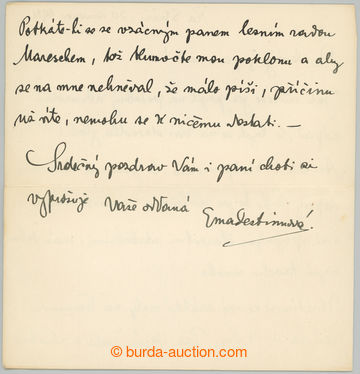 Potkáte-li se se vzácným panem lesním radou
Mareschem, tož tlumočte mou poklonu a aby
se na mne nehněval, že málo píši, příčinu
už víte, nemohu se k ničemu dostati. —
Srdečný pozdrav Vám i paní choti si
vyprošuje Vaše oddaná
Ema Destinnová.
© burda-auction.com